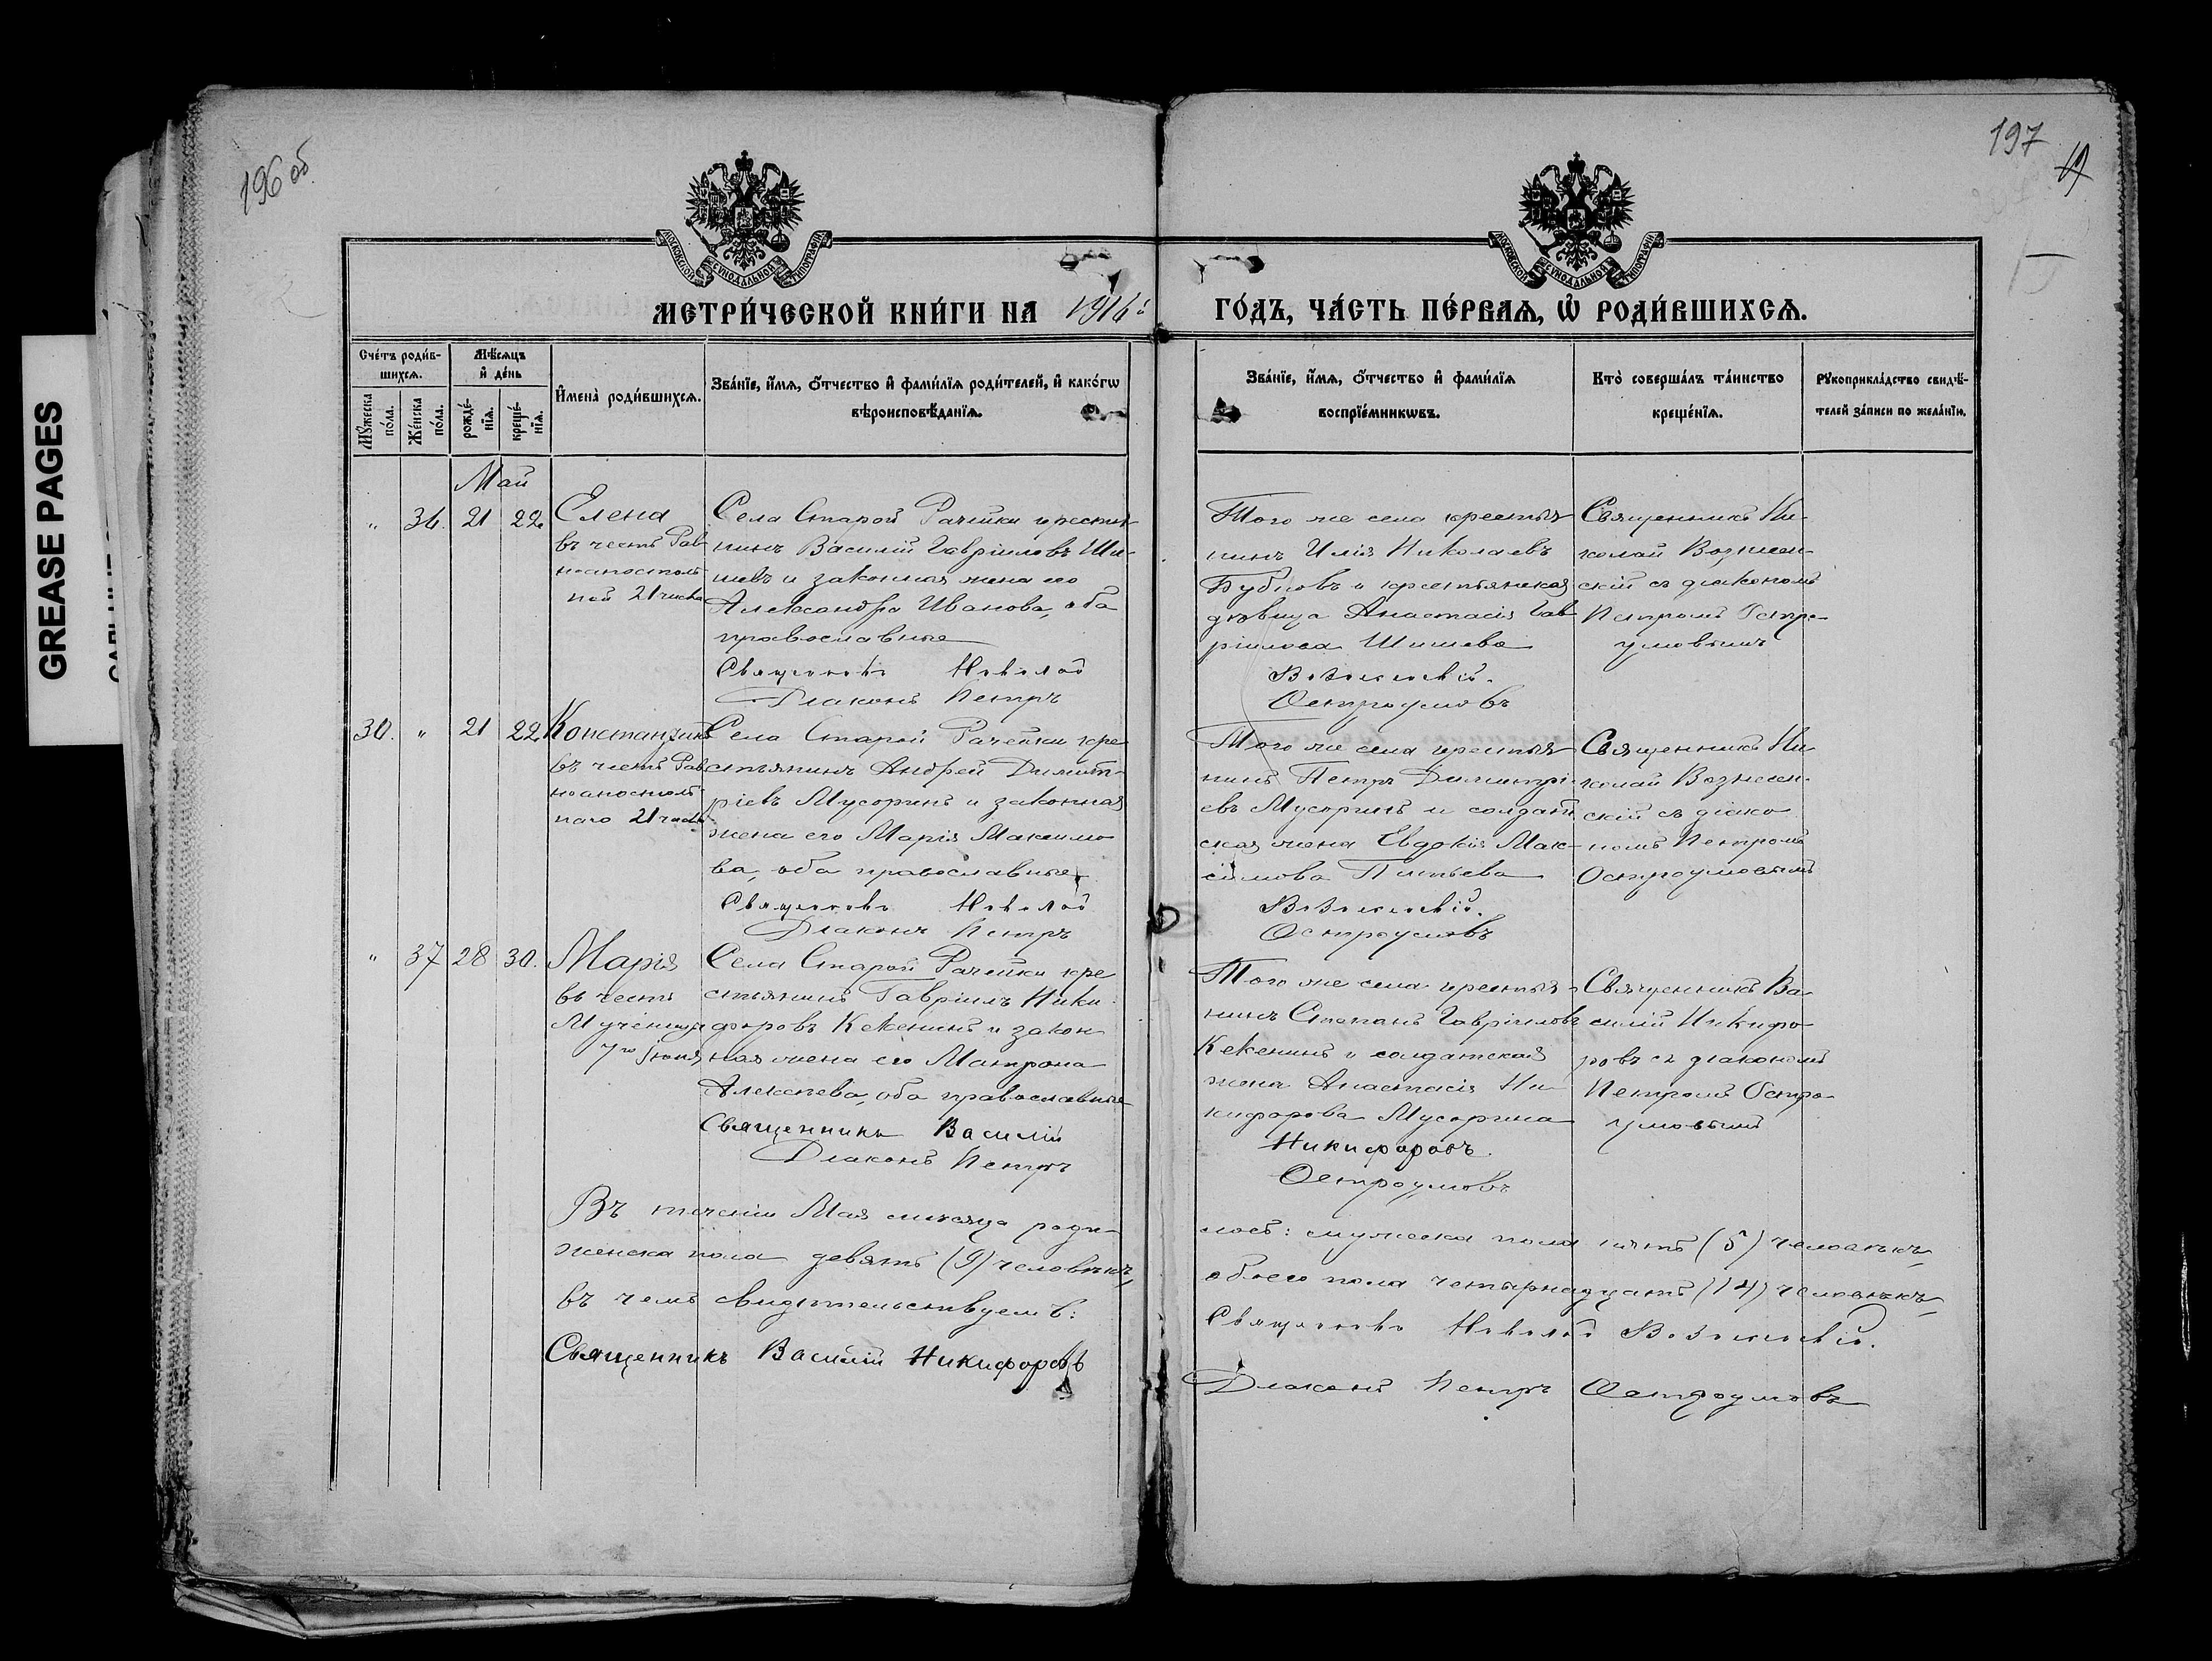 GREASE PAGES
196 об.
197
МОСКОВСКОЙ СѴНОДАЛЬНОЙ ТИПОГРАФІИ
МОСКОВСКОЙ СѴНОДАЛЬНОЙ ТИПОГРАФІИ
МЕТРИ́ЧЕСКОЙ КНИ́ГИ НА
ГО́ДЪ, ЧА́СТЬ ПЕ́РВАѦ, Ѡ҆ РОДИ́ВШИХСѦ.
Сче́тъ роди́в-
шихсѧ.
Мꙋ́жеска по́ла.
Же́нска по́ла.
Мѣ́сѧцъ
и҆ де́нь
рожде́-
нїѧ.
креще́-
нїѧ.
И҆мена̀ роди́вшихсѧ.
Зва́нїе, и҆́мѧ, ѻ҆́тчество и҆ фами́лїѧ роди́телей, и҆ како́гѡ
вѣроисповѣ́данїѧ.
Зва́нїе, и҆́мѧ, ѻ҆́тчество и҆ фами́лїѧ
воспрїе́мникѡвъ.
Кто̀ соверша́лъ та́инство
креще́нїѧ.
Рꙋкоприкла́дство свидѣ́-
телей за́писи по жела́нїю.
Май
" 36. 21 22.
Елена
въ честь Рав-
ноапостоль
ной 21 числа
Села Старой Рачейки крестья
нинъ Василій Гавріиловъ Ши-
шевъ и законная жена его
Александра Иванова, оба
православные
Священникъ Николай
Діаконъ Петръ
Того же села крестья
нинъ Илія Николаевъ
Бубновъ и крестьянская
дѣвица Анастасія Гав
ріилова Шишева
Вознесенскій.
Остроумовъ
Священникъ Ни-
колай Вознесен-
скій съ діакономъ
Петромъ Остро-
умовымъ
30. " 21 22.
Константинъ
въ честь Рав
ноапостоль
наго 21 числа
Села Старой Рачейки кре
стьянинъ Андрей Димит-
ріевъ Мусоринъ и законная
жена его Марія Максимо
ва, оба православные
Священникъ Николай
Діаконъ Петръ
Того же села крестья
нинъ Петръ Димитрі-
евъ Мусоринъ и солдат
ская жена Евдокія Мак-
симова
Вознесенскій.
Остроумовъ
Священникъ Ни-
колай Вознесен-
скій съ діако
номъ Петромъ
Остроумовымъ
" 37 28 30.
Марія
въ честь
Мученицы
7го Іюня
Села Старой Рачейки кре
стьянинъ Гавріилъ Ники-
форовъ Кекенинъ и закон
ная жена его Матрона
Алексѣева, оба православные
Священникъ Василій
Діаконъ Петръ
Того же села крестья-
нинъ Степанъ Гавріиловъ
Кекенинъ и солдатская
жена Анастасія Ни-
кифорова Мусорина
Никифоровъ.
Остроумовъ
Священникъ Ва-
силій Никифо-
ровъ съ діакономъ
Петромъ Остро-
умовымъ
Въ теченіи Мая мѣсяца роди-
лось: мужеска пола пять (5) человѣкъ,
женска пола девять (9) человѣкъ,
обоего пола четырнадцать (14) человѣкъ,
въ чемъ свидѣтельствуемъ:
Священникъ Николай Вознесенскій.
Священникъ Василій Никифоровъ
Діаконъ Петръ Остроумовъ